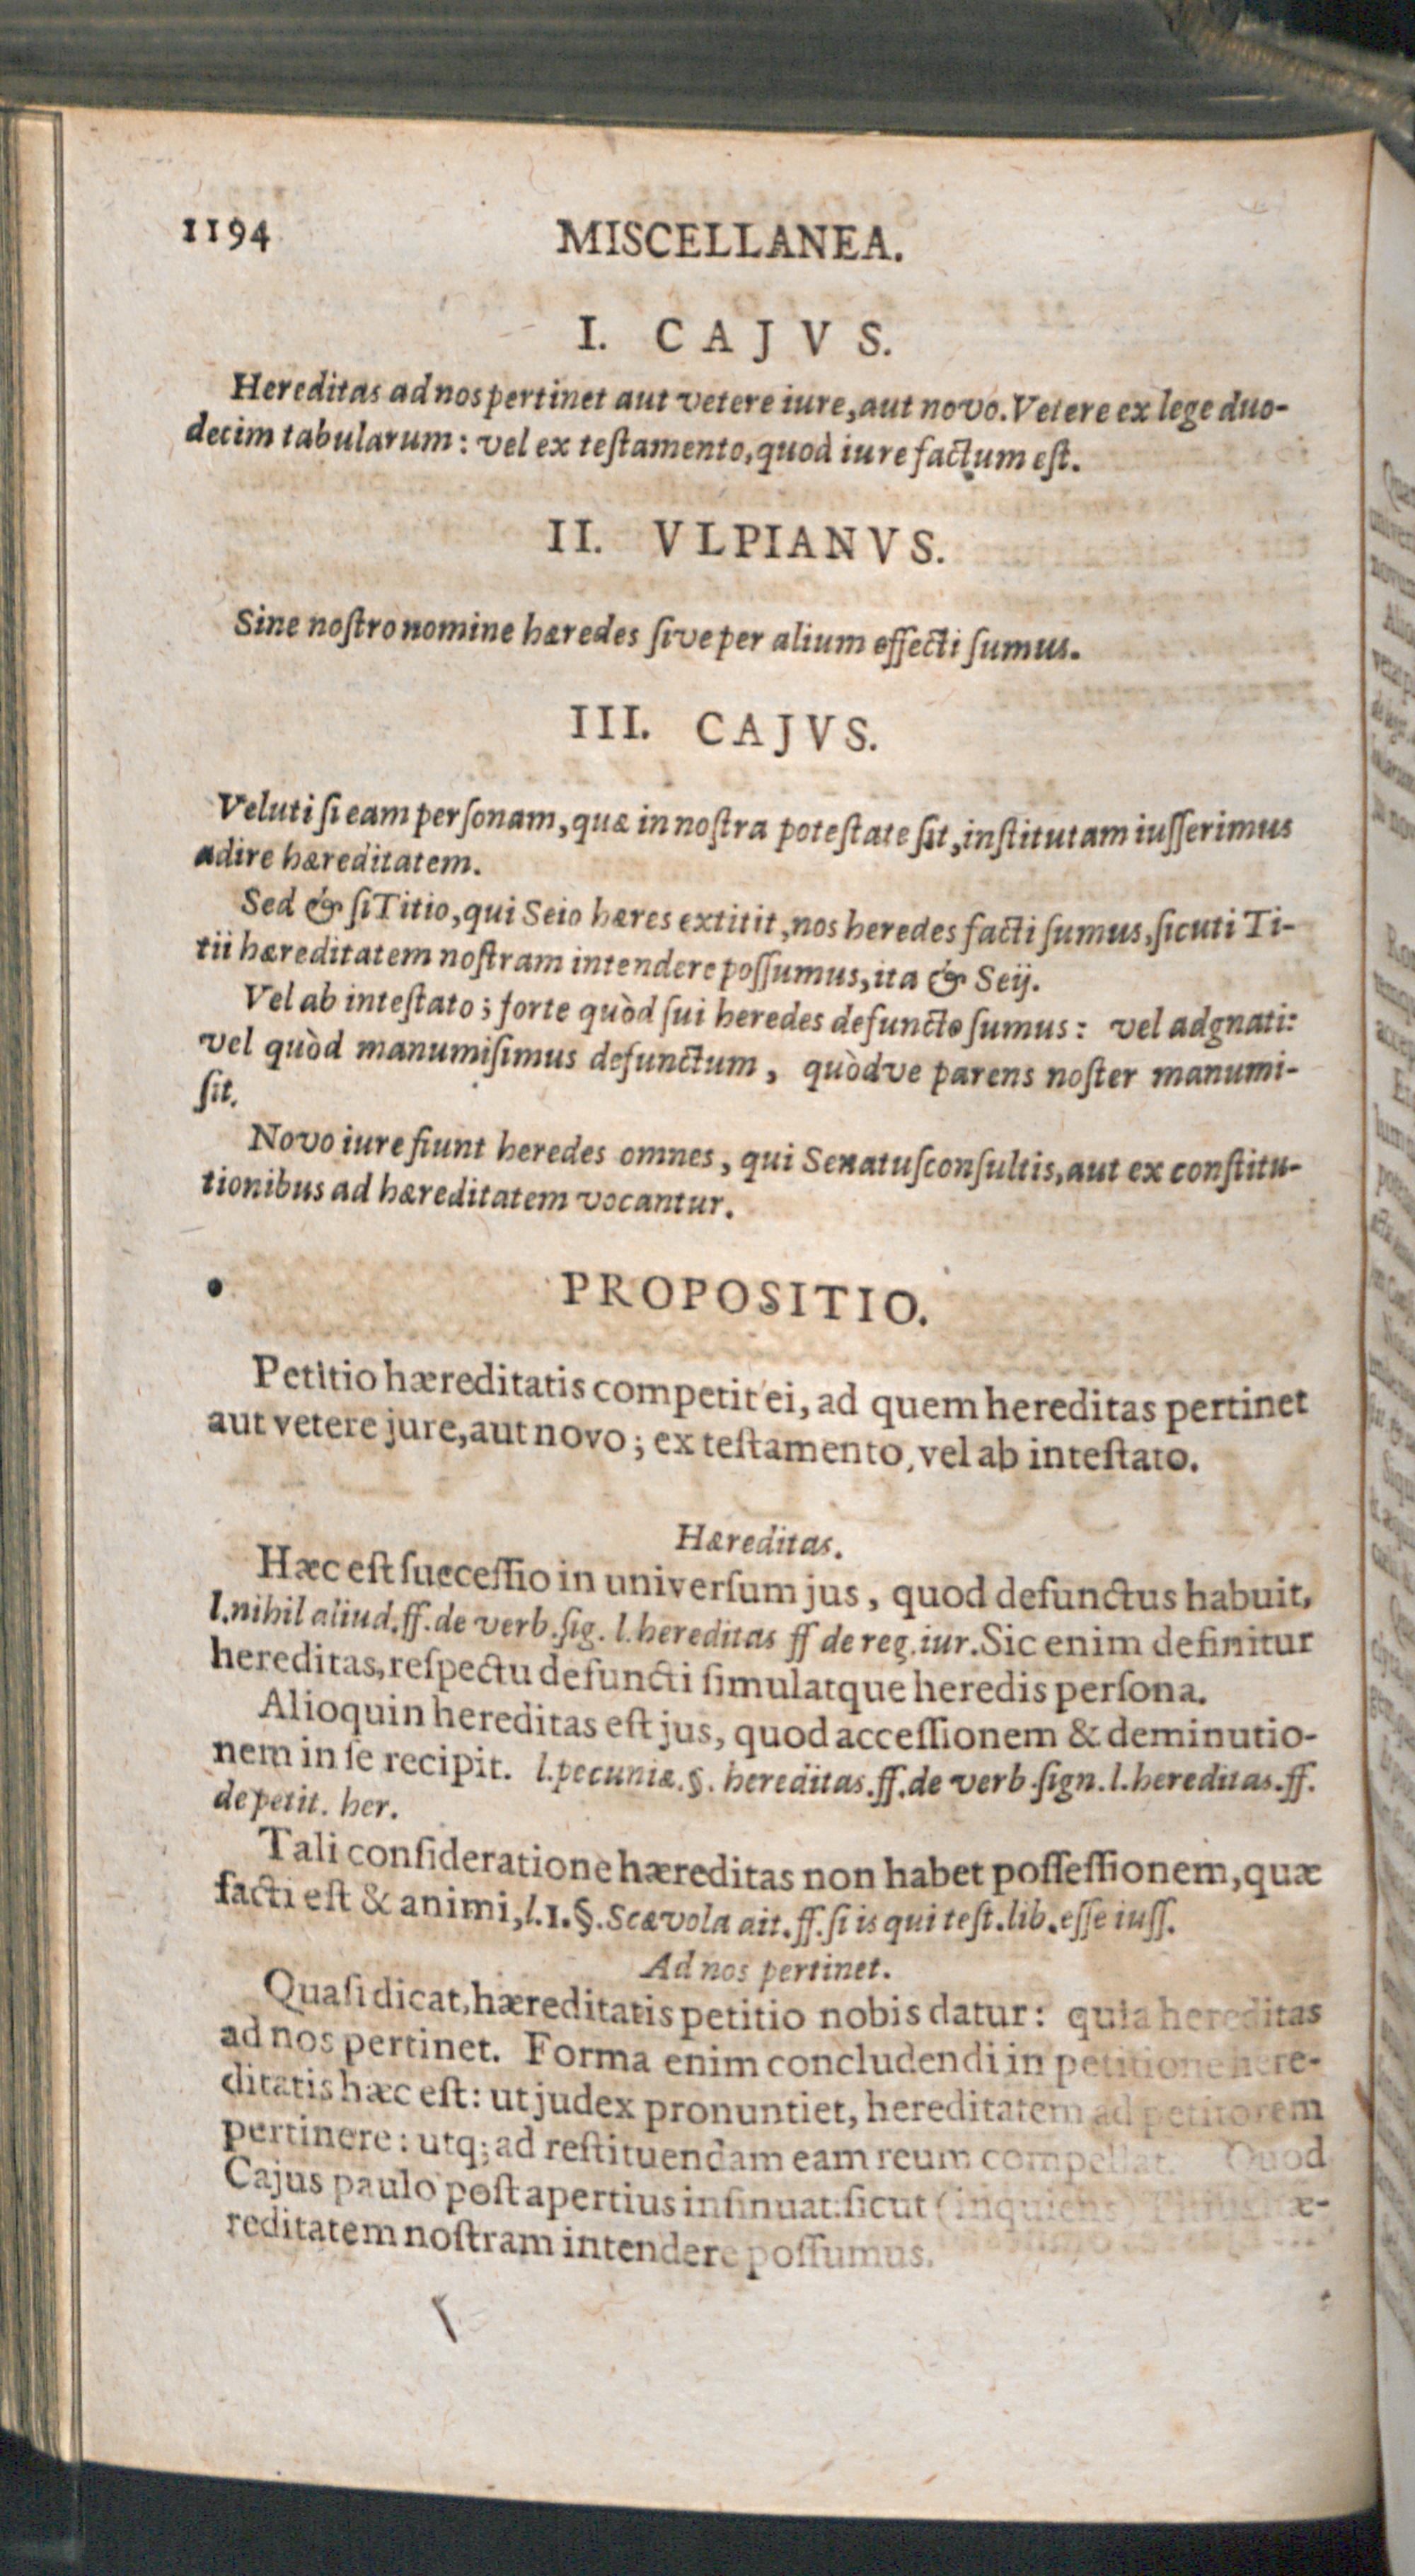 1194 MISCELLANEA.
I. CAJVS.
Hereditas ad nos pertinet aut vetere iure, aut novo. Vetere ex lege duo-
decim tabularum: vel ex teſtamento, quod iure factum eſt.
II. VLPIANVS.
Sine noſtro nomine hæredes ſive per alium effecti ſumus.
III. CAJVS.
Veluti ſi eam perſonam, quæ in noſtra poteſtate ſit, inſtitutam iuſſerimus
adire hæreditatem.
Sed & ſi Titio, qui Seio hæres extitit, nos heredes facti ſumus, ſicuti Ti-
tii hæreditatem noſtram intendere poſſumus, ita & Seij.
Vel ab inteſtato; forte quòd ſui heredes defuncto ſumus: vel adgnati:
vel quòd manumiſimus defunctum, quòdve parens noſter manumi-
ſit.
Novo iure fiunt heredes omnes, qui Senatuſconſultis, aut ex conſtitu-
tionibus ad hæreditatem vocantur.
PROPOSITIO.
Petitio hæreditatis competit ei, ad quem hereditas pertinet
aut vetere jure, aut novo; ex teſtamento, vel ab inteſtato.
Hæreditas.
Hæc eſt ſucceſſio in univerſum jus, quod defunctus habuit,
l. nihil aliud. ff. de verb. ſig. l. hereditas ff de reg. iur. Sic enim definitur
hereditas, reſpectu defuncti ſimulatque heredis perſona.
Alioquin hereditas eſt jus, quod acceſſionem & deminutio-
nem in ſe recipit. l. pecuniæ. §. hereditas. ff. de verb. ſign. l. hereditas. ff.
de petit. her.
Tali conſideratione hæreditas non habet poſſeſſionem, quæ
facti eſt & animi, l. 1. §. Scævola ait. ff. ſi is qui teſt. lib. eſſe iuſſ.
Ad nos pertinet.
Quaſi dicat, hæreditatis petitio nobis datur: quia hereditas
ad nos pertinet. Forma enim concludendi in petitione here-
ditatis hæc eſt: ut judex pronuntiet, hereditatem ad petitorem
pertinere: utq; ad reſtituendam eam reum compellat. Quod
Cajus paulo poſt apertius inſinuat: ſicut (inquiens) æ-
reditatem noſtram intendere poſſumus.